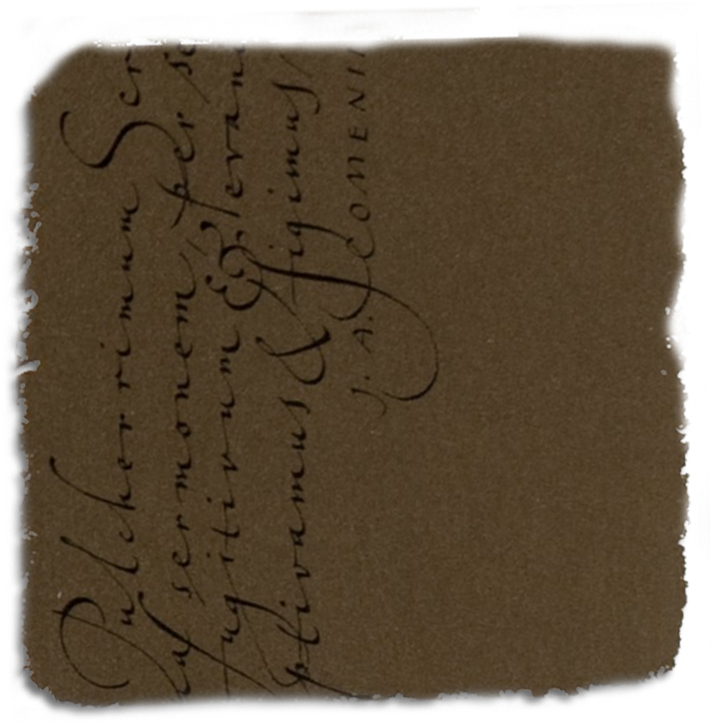 Pulcherrimum Scr
sermonem, per se
fugitivum & evane
ptivamus & figimus,
J. A. COMENII